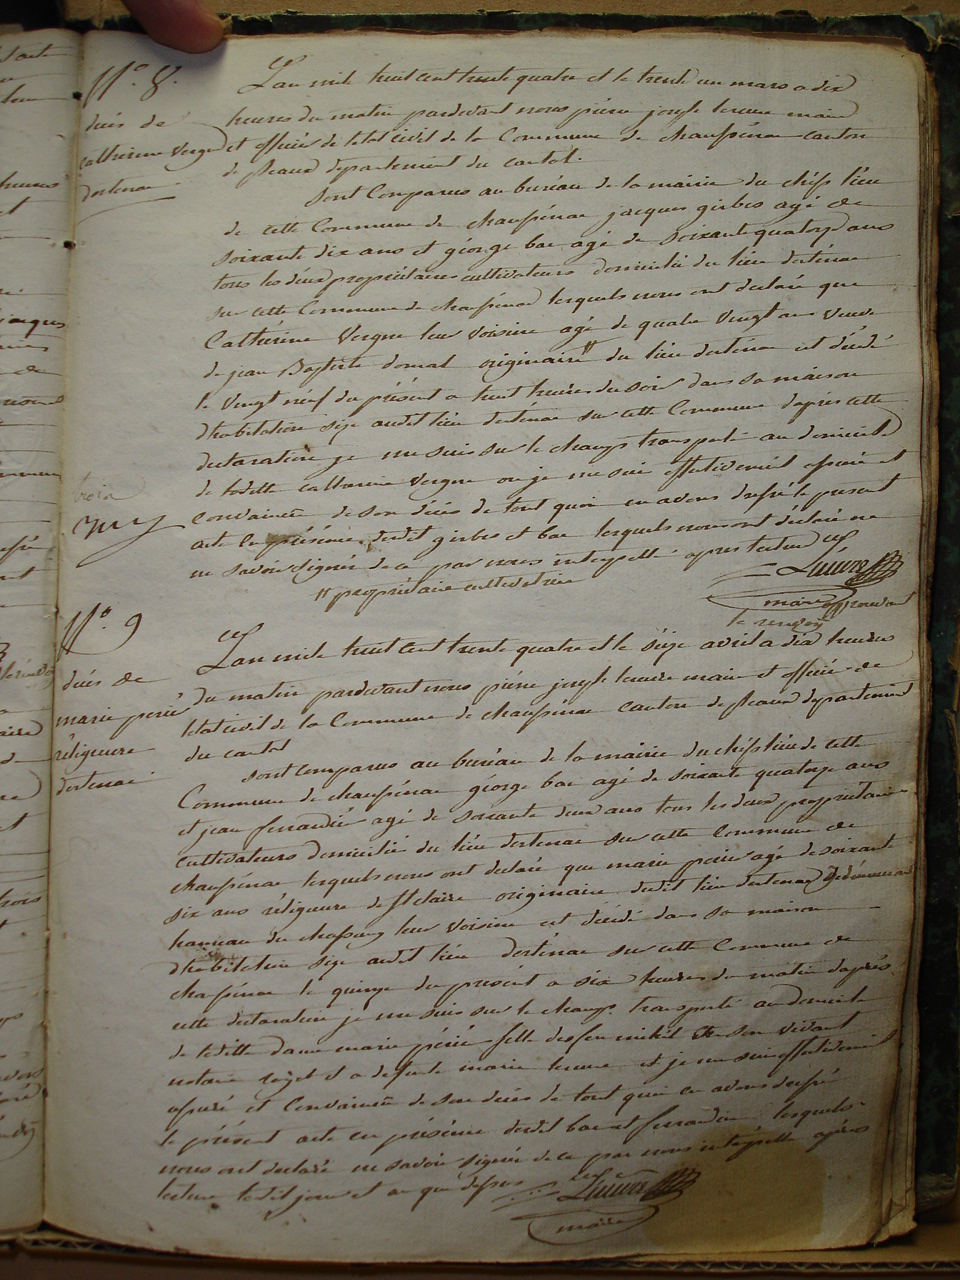 N.o 8.
décès de
catherine Vergne
dostenac
L'an mil huit cent trente quatre et le trente un mars a dix
heures du matin pardevant nous pierre joseph lacure maire
et officier de letat civil de la Commune de chaussenac canton
de pleaux departement du cantal.
sont Comparus au bureau de la mairie du chef lieu
de cette Commune de chaussenac jacques girbes agé de
soixante dix ans et géorge bac agé de soixante quatorze ans
tous les deux propriétaires cultivateurs domicilié du lieu dostenac
sur cette Commune de chaussenac lesquels nous ont déclaré que
Cathérine Vergne leur voisine agé de quatre vingt ans veuve
de jean Baptiste domal originaire # du lieu dostenac est décédé
le vingt neuf du présent a huit heures du soir dans sa maison
dhabitation size audit lieu dostenac sur cette Commune dapres cette
declaration je me suis sur le champ transporté au domicile
de ladite catherine Vergne ou je me suis effectivement assuré et
convaincu de son décès de tout quoi en avons dressé le present
acte en présence dudit girbes et bac lesquels nous ont déclaré ne
ne savoir signer de ce par nous interpellé apres lecture
# propriétaire cultivatrice
maire approuvant
le renvoy
trois
N.o 9
décès de
marie périé
réligieuse
dostenac
L'an mil huit cent trente quatre et le séize avril a dix heures
du matin pardevant nous piérre joseph lacure maire et officier de
létat civil de la Commune de chaussenac canton de pleaux departement
du cantal
sont comparus au buréau de la mairie du chéf lieu de cette
Commune de chaussenac géorge bac agé de soixante quatorze ans
et jean ferrandié agé de soixante deux ans tous les deux propriétaire
cultivateurs domicilié du lieu dostenac sur cette Commune de
chaussenac lesquels nous ont declaré que marie périé agé de soixante
six ans réligieuse de Ste claire originaire dudit lieu dostenac
hameau du leur voisine est décédé dans sa maison
dhabitation size audit lieu dostenac sur cette Commune de
chaussenac le quinze du présent a six heures du matin daprés
cette declaration je me suis sur le champ transporté au domicile
de ladite dame marie périé fille de feu michel de son vivant
notaire royal et a defunte marie et je me suis effectivement
assuré et convaincu de son décès de tout quoi en avons dressé
le présent acte en présence dudit bac et ferrandié lesquels
nous ont declaré ne savoir signer de ce par nous intérpellé aprés
lecture ledit jour et an que dessus
maire